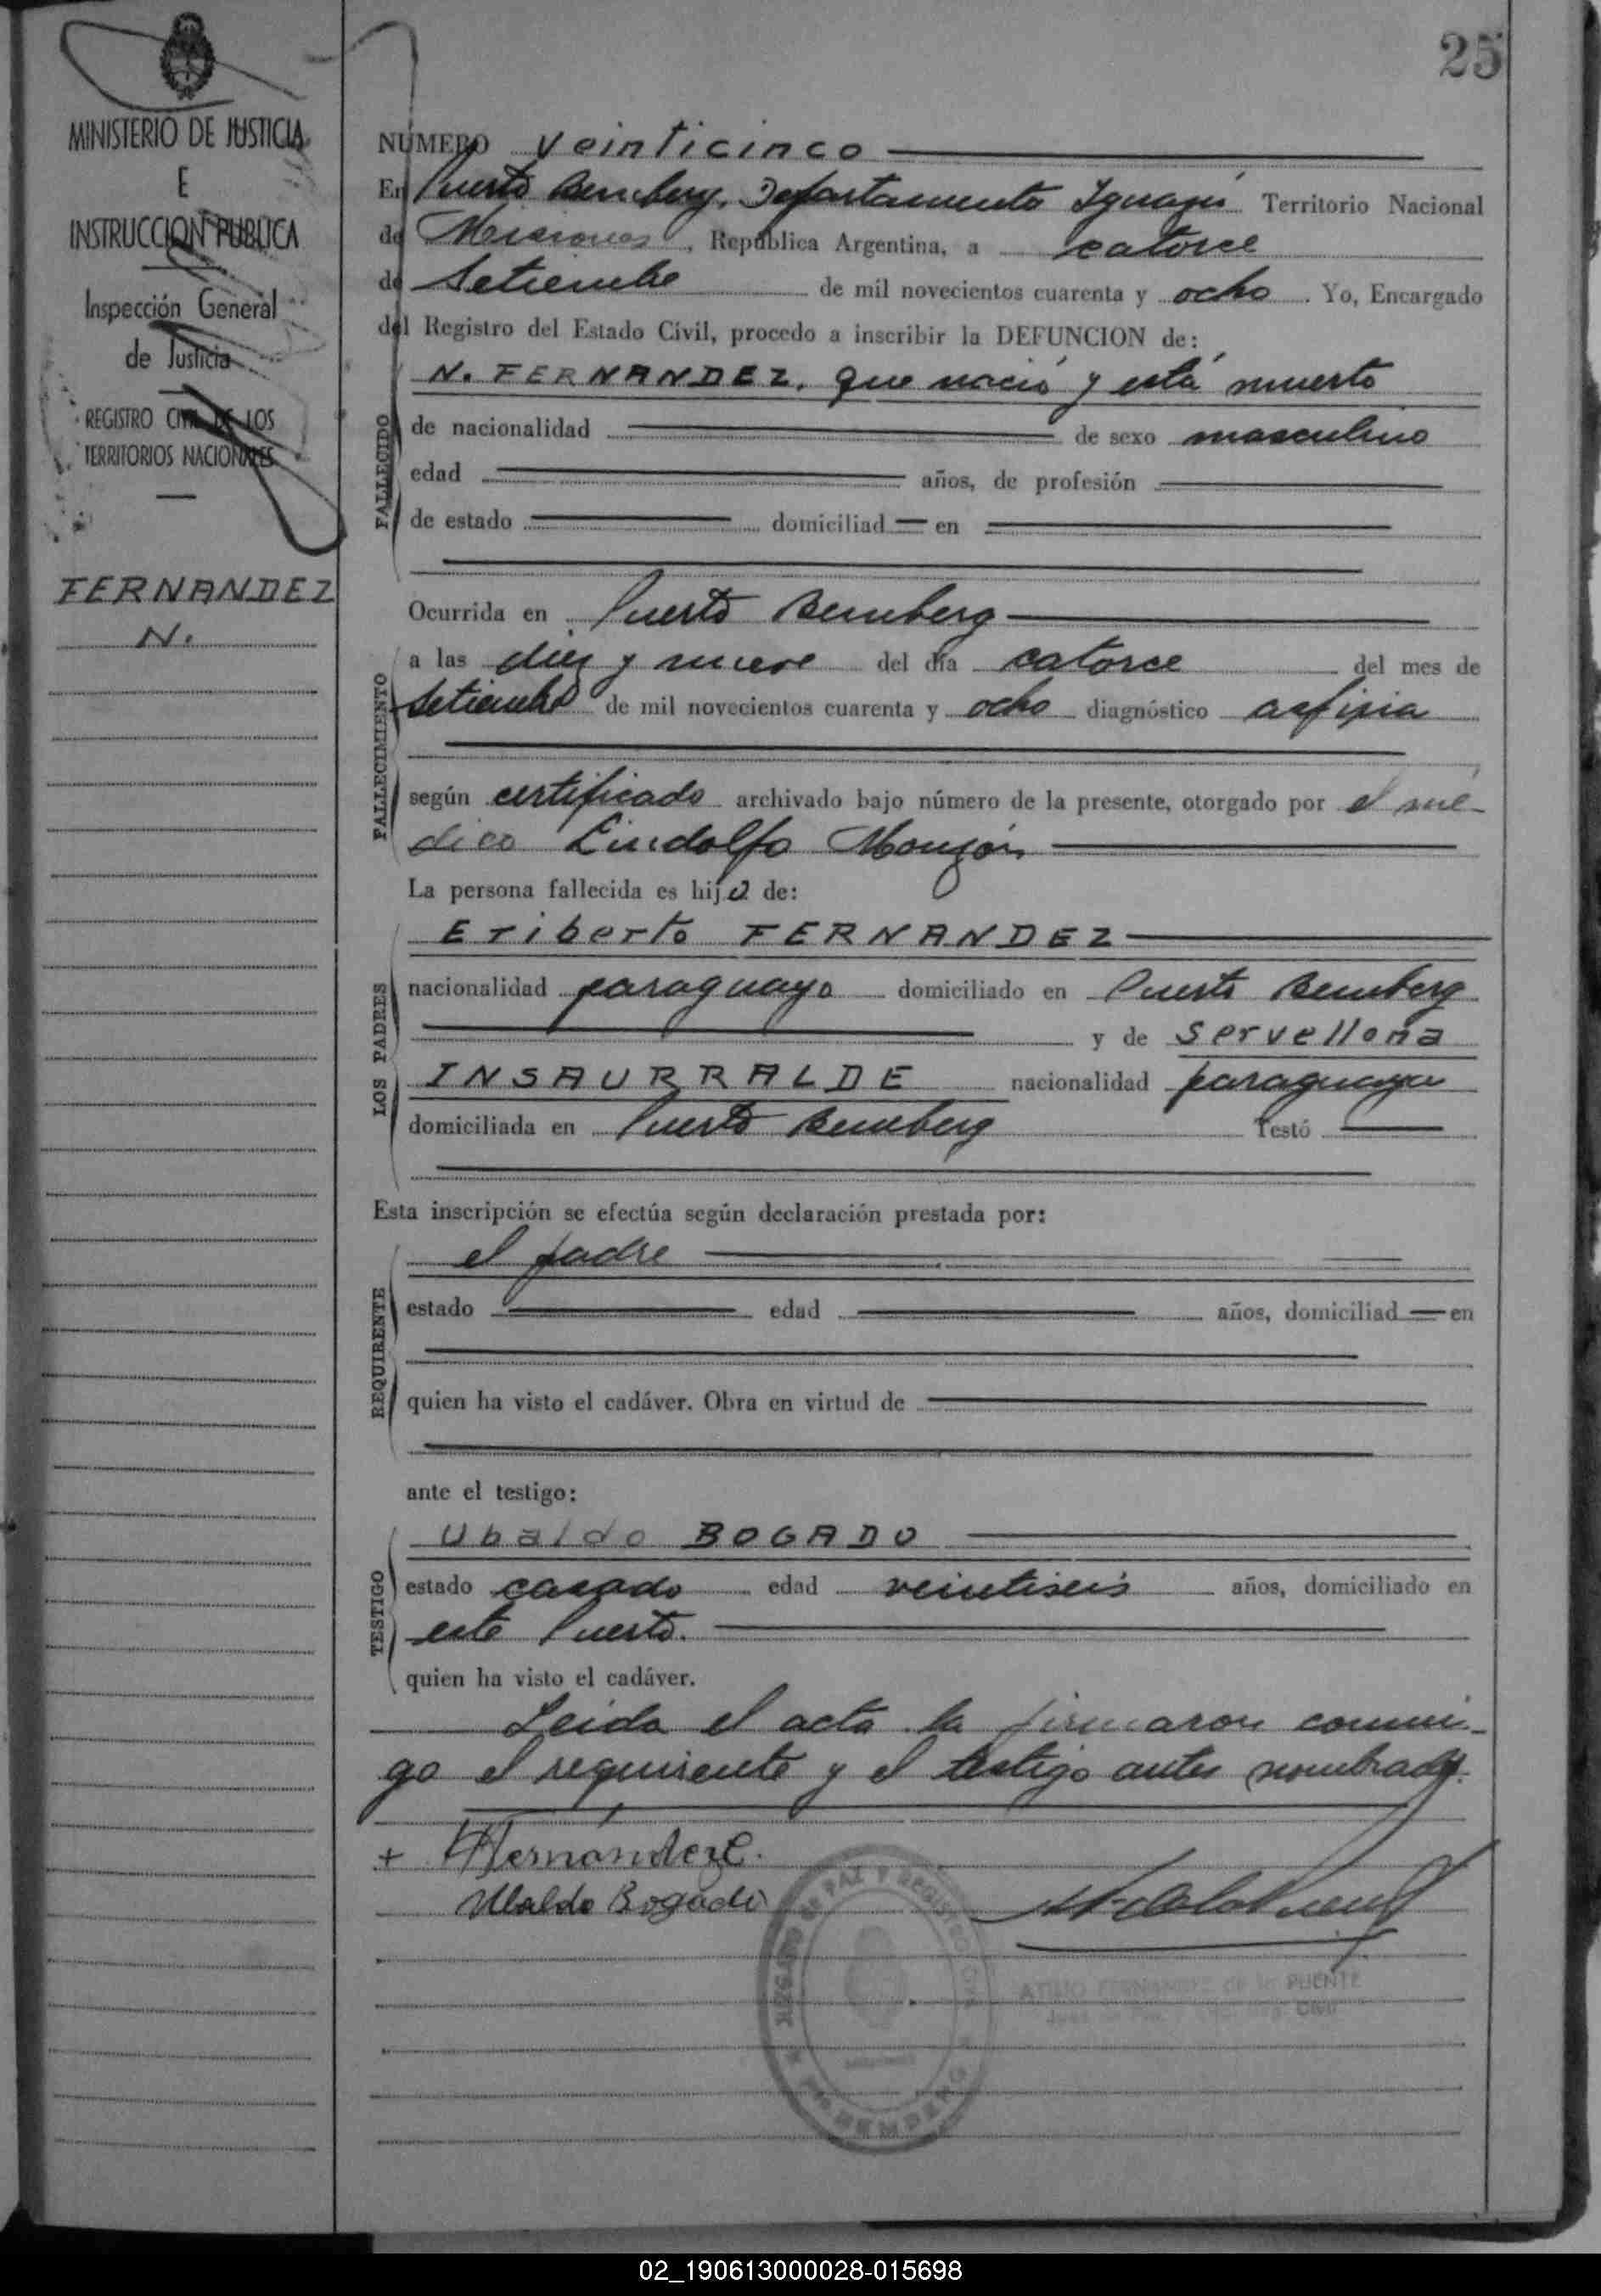 25
MINISTERIO DE JUSTICIA
E
INSTRUCCION PUBLICA
Inspección General
de Justicia
REGISTRO CIVIL DE LOS
TERRITORIOS NACIONALES
FERNANDEZ
N.
NÚMERO veinticinco
En Puerto Bemberg, Departamento Iguazú Territorio Nacional
de Misiones, República Argentina, a catorce
de Setiembre de mil novecientos cuarenta y ocho. Yo, Encargado
del Registro del Estado Civil, procedo a inscribir la DEFUNCION de:
N. FERNANDEZ, que nació y está muerto
FALLECIDO
de nacionalidad de sexo masculino
edad años, de profesión
de estado domiciliad en
Ocurrida en Puerto Bemberg
FALLECIMIENTO
a las diez y nueve del día catorce del mes de
Setiembre de mil novecientos cuarenta y ocho diagnóstico asfixia
según certificado archivado bajo número de la presente, otorgado por el mé-
dico Lindolfo Monzón
La persona fallecida es hijo de:
LOS PADRES
Eriberto FERNANDEZ
nacionalidad paraguayo domiciliado en Puerto Bemberg
y de Servellona
INSAURRALDE nacionalidad paraguaya
domiciliada en Puerto Bemberg Testó
Esta inscripción se efectúa según declaración prestada por:
REQUIRENTE
el padre
estado edad años, domiciliad en
quien ha visto el cadáver. Obra en virtud de
ante el testigo:
TESTIGO
Ubaldo BOGADO
estado casado edad veintiseis años, domiciliado en
este Puerto.
quien ha visto el cadáver.
Leída el acta la firmaron conmi-
go el requirente y el testigo antes nombrado.
+ Hernández.
Ubaldo Bogado
JUZGADO DE PAZ Y REGISTRO CIVIL
Pto BEMBERG
ATILIO FERNANDEZ de la PUENTE
02_190613000028-015698